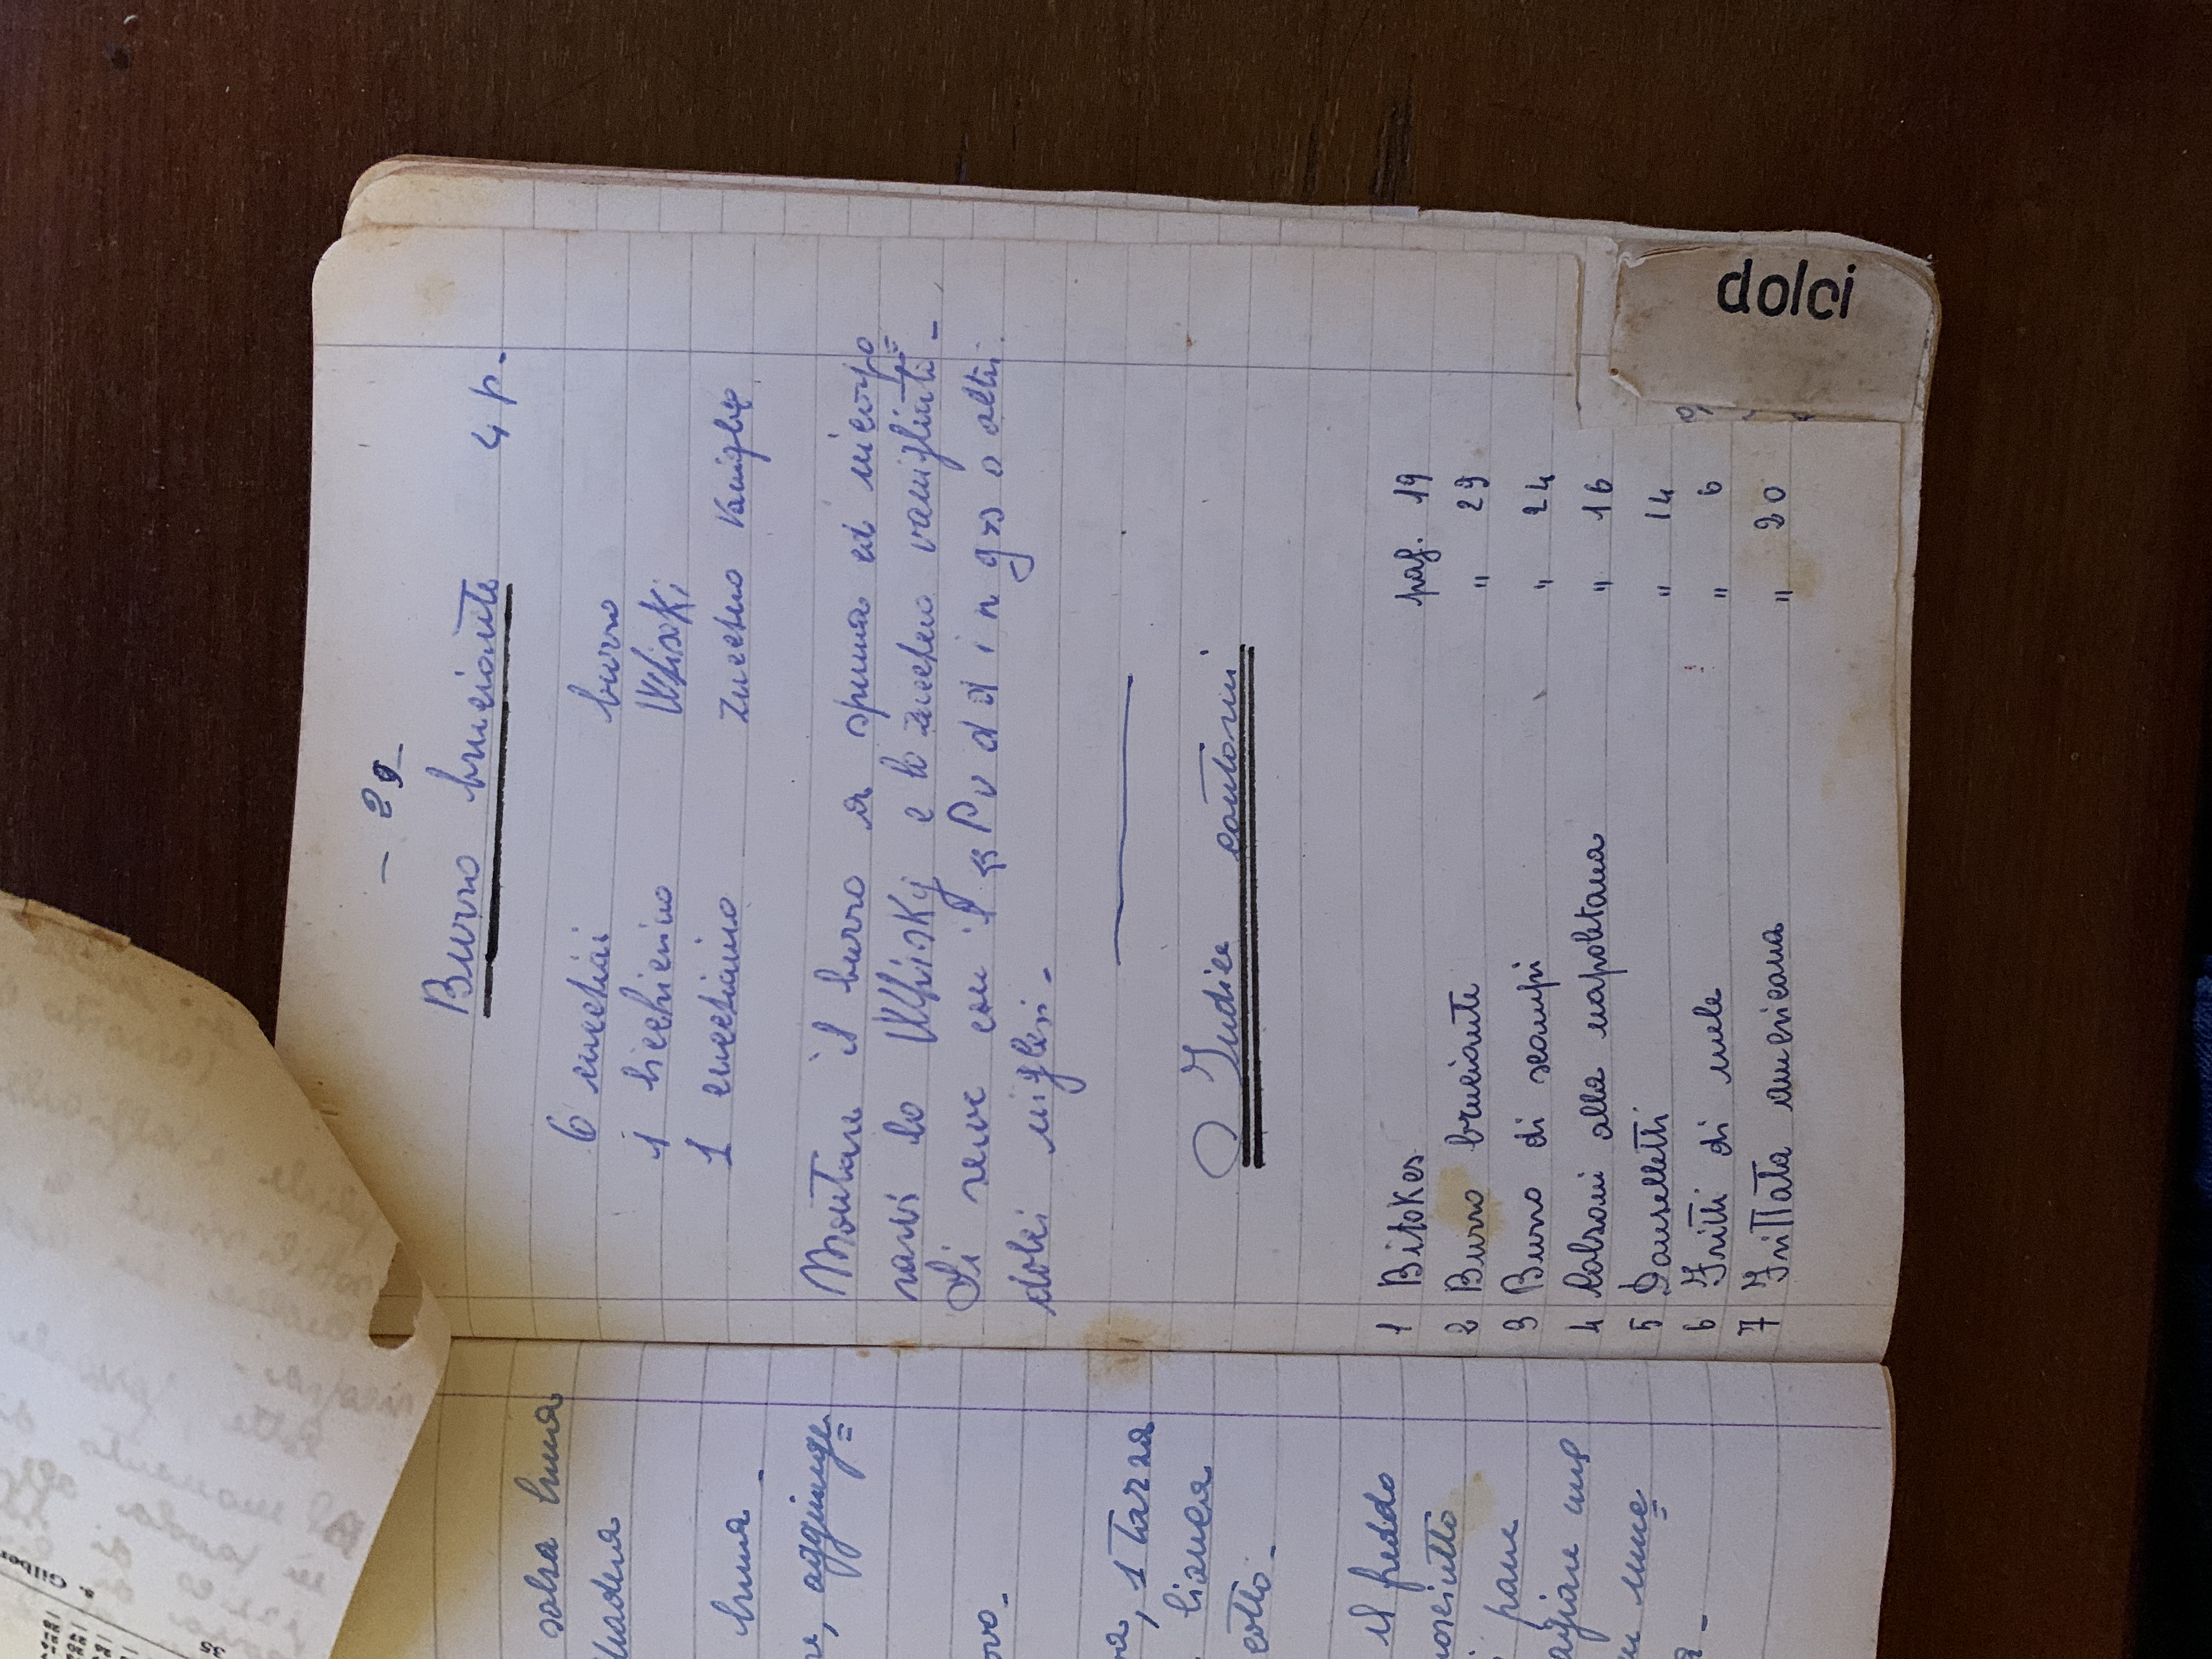 s. Gilber
35
salsa bruna
Madera
bruna -
re, aggiunge
ovo -
va, 1 tazza
bianca
cotto -
il freddo
prosciutto
i pane
agiare nel
- 29 -
Burro bruciante 4 p.
6 cucchiai burro
1 bicchierino Whiski
1 cucchiaino Zucchero Vaniglia
Montare il burro a spuma ed incorpo
rarvi lo Whisky e lo zucchero vanigliato -
Si serve con il «Pudding» o altri
dolci inglesi -
Indice contorni
1 Bitokes pag. 19
2 Burro bruciante " 29
3 Burro di scampi " 24
4 Calzoni alla napoletana " 16
5 Panzelletti " 14
6 Fritti di mele " 6
7 Frittata americana " 20
dolci